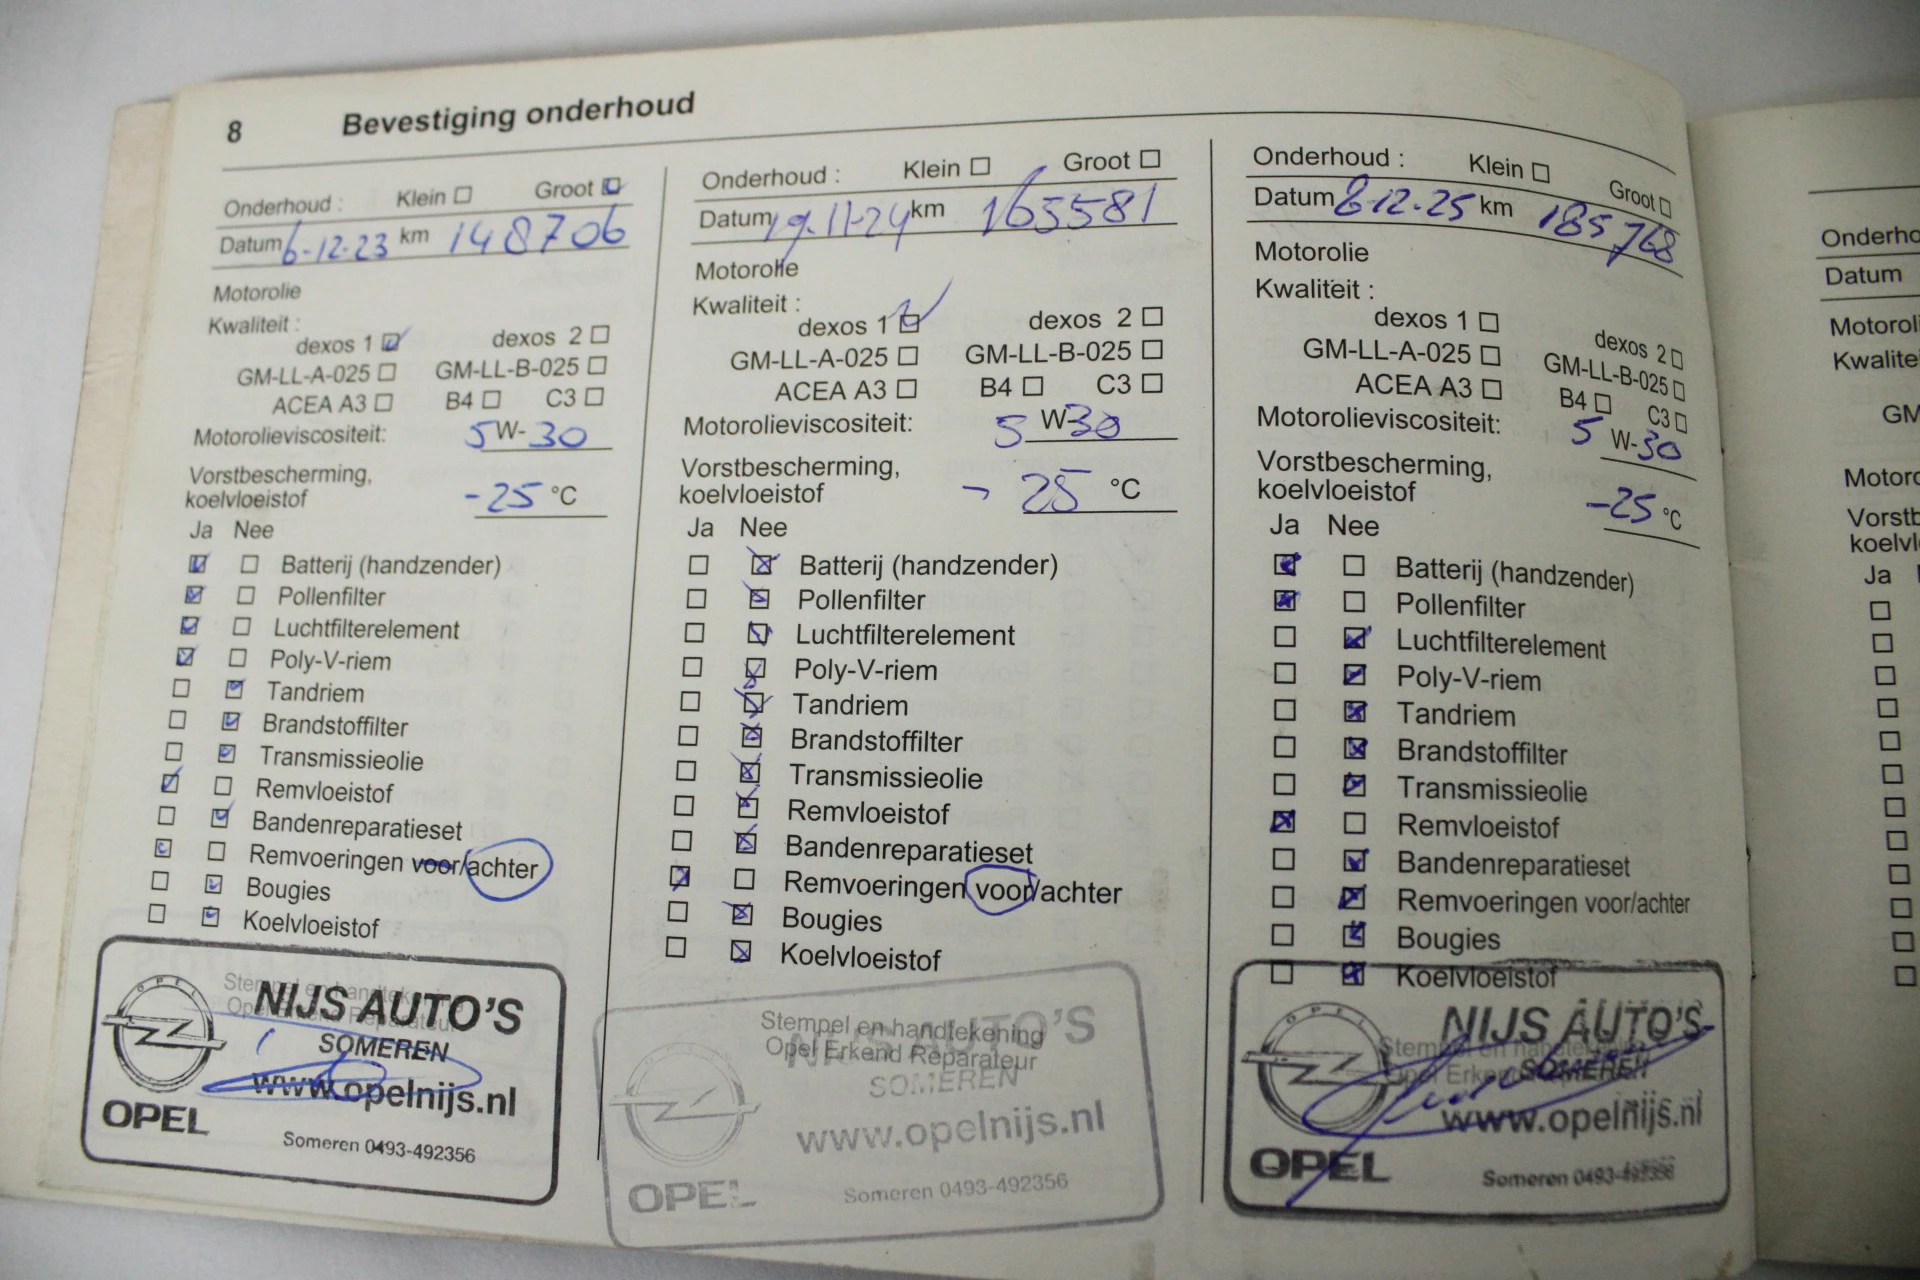 8 Bevestiging onderhoud
Onderhoud : Klein Groot
Datum 6-12-23 km 148706
Motorolie
Kwaliteit :
dexos 1 dexos 2
GM-LL-A-025 GM-LL-B-025
ACEA A3 B4 C3
Motorolieviscositeit: 5 W-30
Vorstbescherming,
koelvloeistof -25 °C
Ja Nee
Batterij (handzender)
Pollenfilter
Luchtfilterelement
Poly-V-riem
Tandriem
Brandstoffilter
Transmissieolie
Remvloeistof
Bandenreparatieset
Remvoeringen voor/achter
Bougies
Koelvloeistof
Stempel en handtekening
Opel Erkend Reparateur
OPEL
NIJS AUTO'S
SOMEREN
www.opelnijs.nl
OPEL
Someren 0493-492356
Onderhoud : Klein Groot
Datum 19-11-24 km 165581
Motorolie
Kwaliteit :
dexos 1 dexos 2
GM-LL-A-025 GM-LL-B-025
ACEA A3 B4 C3
Motorolieviscositeit: 5 W-30
Vorstbescherming,
koelvloeistof - 25 °C
Ja Nee
Batterij (handzender)
Pollenfilter
Luchtfilterelement
Poly-V-riem
Tandriem
Brandstoffilter
Transmissieolie
Remvloeistof
Bandenreparatieset
Remvoeringen voor/achter
Bougies
Koelvloeistof
Stempel en handtekening
Opel Erkend Reparateur
NIJS AUTO'S
SOMEREN
www.opelnijs.nl
OPEL
Someren 0493-492356
Onderhoud : Klein Groot
Datum 8-12-25 km 185768
Motorolie
Kwaliteit :
dexos 1 dexos 2
GM-LL-A-025 GM-LL-B-025
ACEA A3 B4 C3
Motorolieviscositeit: 5 W-30
Vorstbescherming,
koelvloeistof -25 °C
Ja Nee
Batterij (handzender)
Pollenfilter
Luchtfilterelement
Poly-V-riem
Tandriem
Brandstoffilter
Transmissieolie
Remvloeistof
Bandenreparatieset
Remvoeringen voor/achter
Bougies
Koelvloeistof
Stempel en handtekening
Opel Erkend
OPEL
NIJS AUTO'S
SOMEREN
www.opelnijs.nl
OPEL
Someren 0493-492356
Onderho
Datum
Motoroli
Kwalite
GM
Motoro
Vorstb
koelvl
Ja